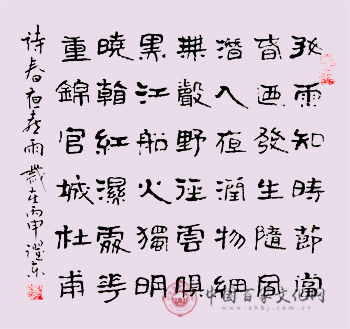 好雨知時節當
春迺發生隨風
潛入夜潤物細
無聲野徑雲俱
黑江船火獨明
曉看紅濕處花
重錦官城杜甫
詩春夜喜雨歲在丙申
中国百家文化网